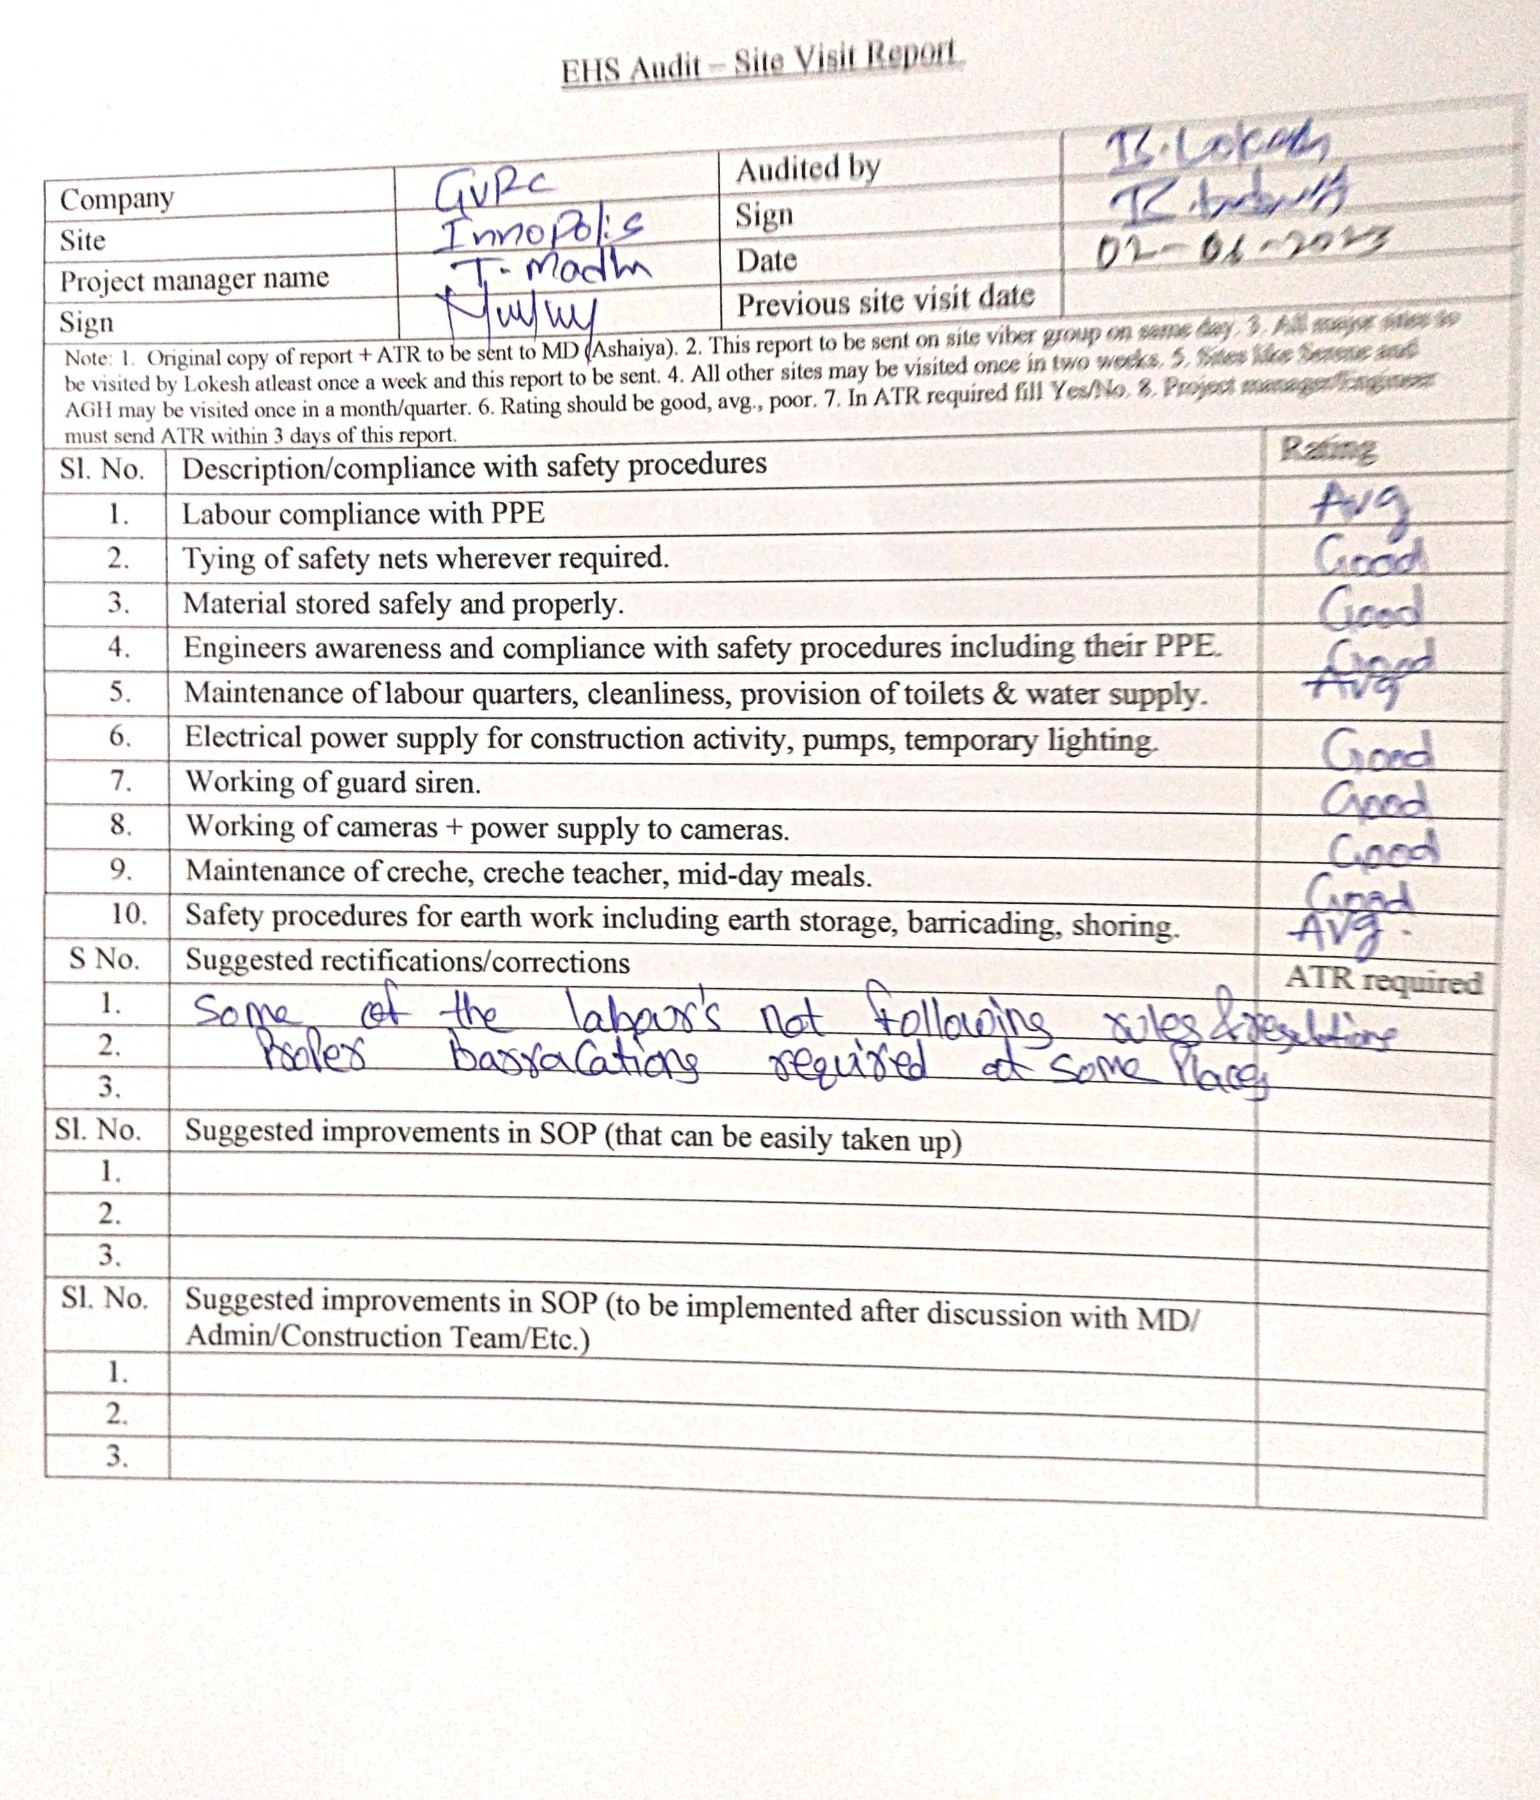 EHS Audit – Site Visit Report
Company GVRC Audited by K. Lokesh
Site Innopolis Sign
Project manager name T. Madhu Date 02-06-2023
Sign Previous site visit date
Note: 1. Original copy of report + ATR to be sent to MD (Ashaiya). 2. This report to be sent on site viber group on same day. 3. All major sites to
be visited by Lokesh atleast once a week and this report to be sent. 4. All other sites may be visited once in two weeks. 5. Sites like Serene and
AGH may be visited once in a month/quarter. 6. Rating should be good, avg., poor. 7. In ATR required fill Yes/No. 8. Project manager/Engineer
must send ATR within 3 days of this report.
Sl. No. Description/compliance with safety procedures Rating
1. Labour compliance with PPE Avg
2. Tying of safety nets wherever required. Good
3. Material stored safely and properly. Good
4. Engineers awareness and compliance with safety procedures including their PPE. Good
5. Maintenance of labour quarters, cleanliness, provision of toilets & water supply. Avg
6. Electrical power supply for construction activity, pumps, temporary lighting. Good
7. Working of guard siren. Good
8. Working of cameras + power supply to cameras. Good
9. Maintenance of creche, creche teacher, mid-day meals. Good
10. Safety procedures for earth work including earth storage, barricading, shoring. Avg.
S No. Suggested rectifications/corrections ATR required
1. Some of the labour's not following rules & regulations
2. Proper barracations required at some Places
3.
Sl. No. Suggested improvements in SOP (that can be easily taken up)
1.
2.
3.
Sl. No. Suggested improvements in SOP (to be implemented after discussion with MD/
Admin/Construction Team/Etc.)
1.
2.
3.